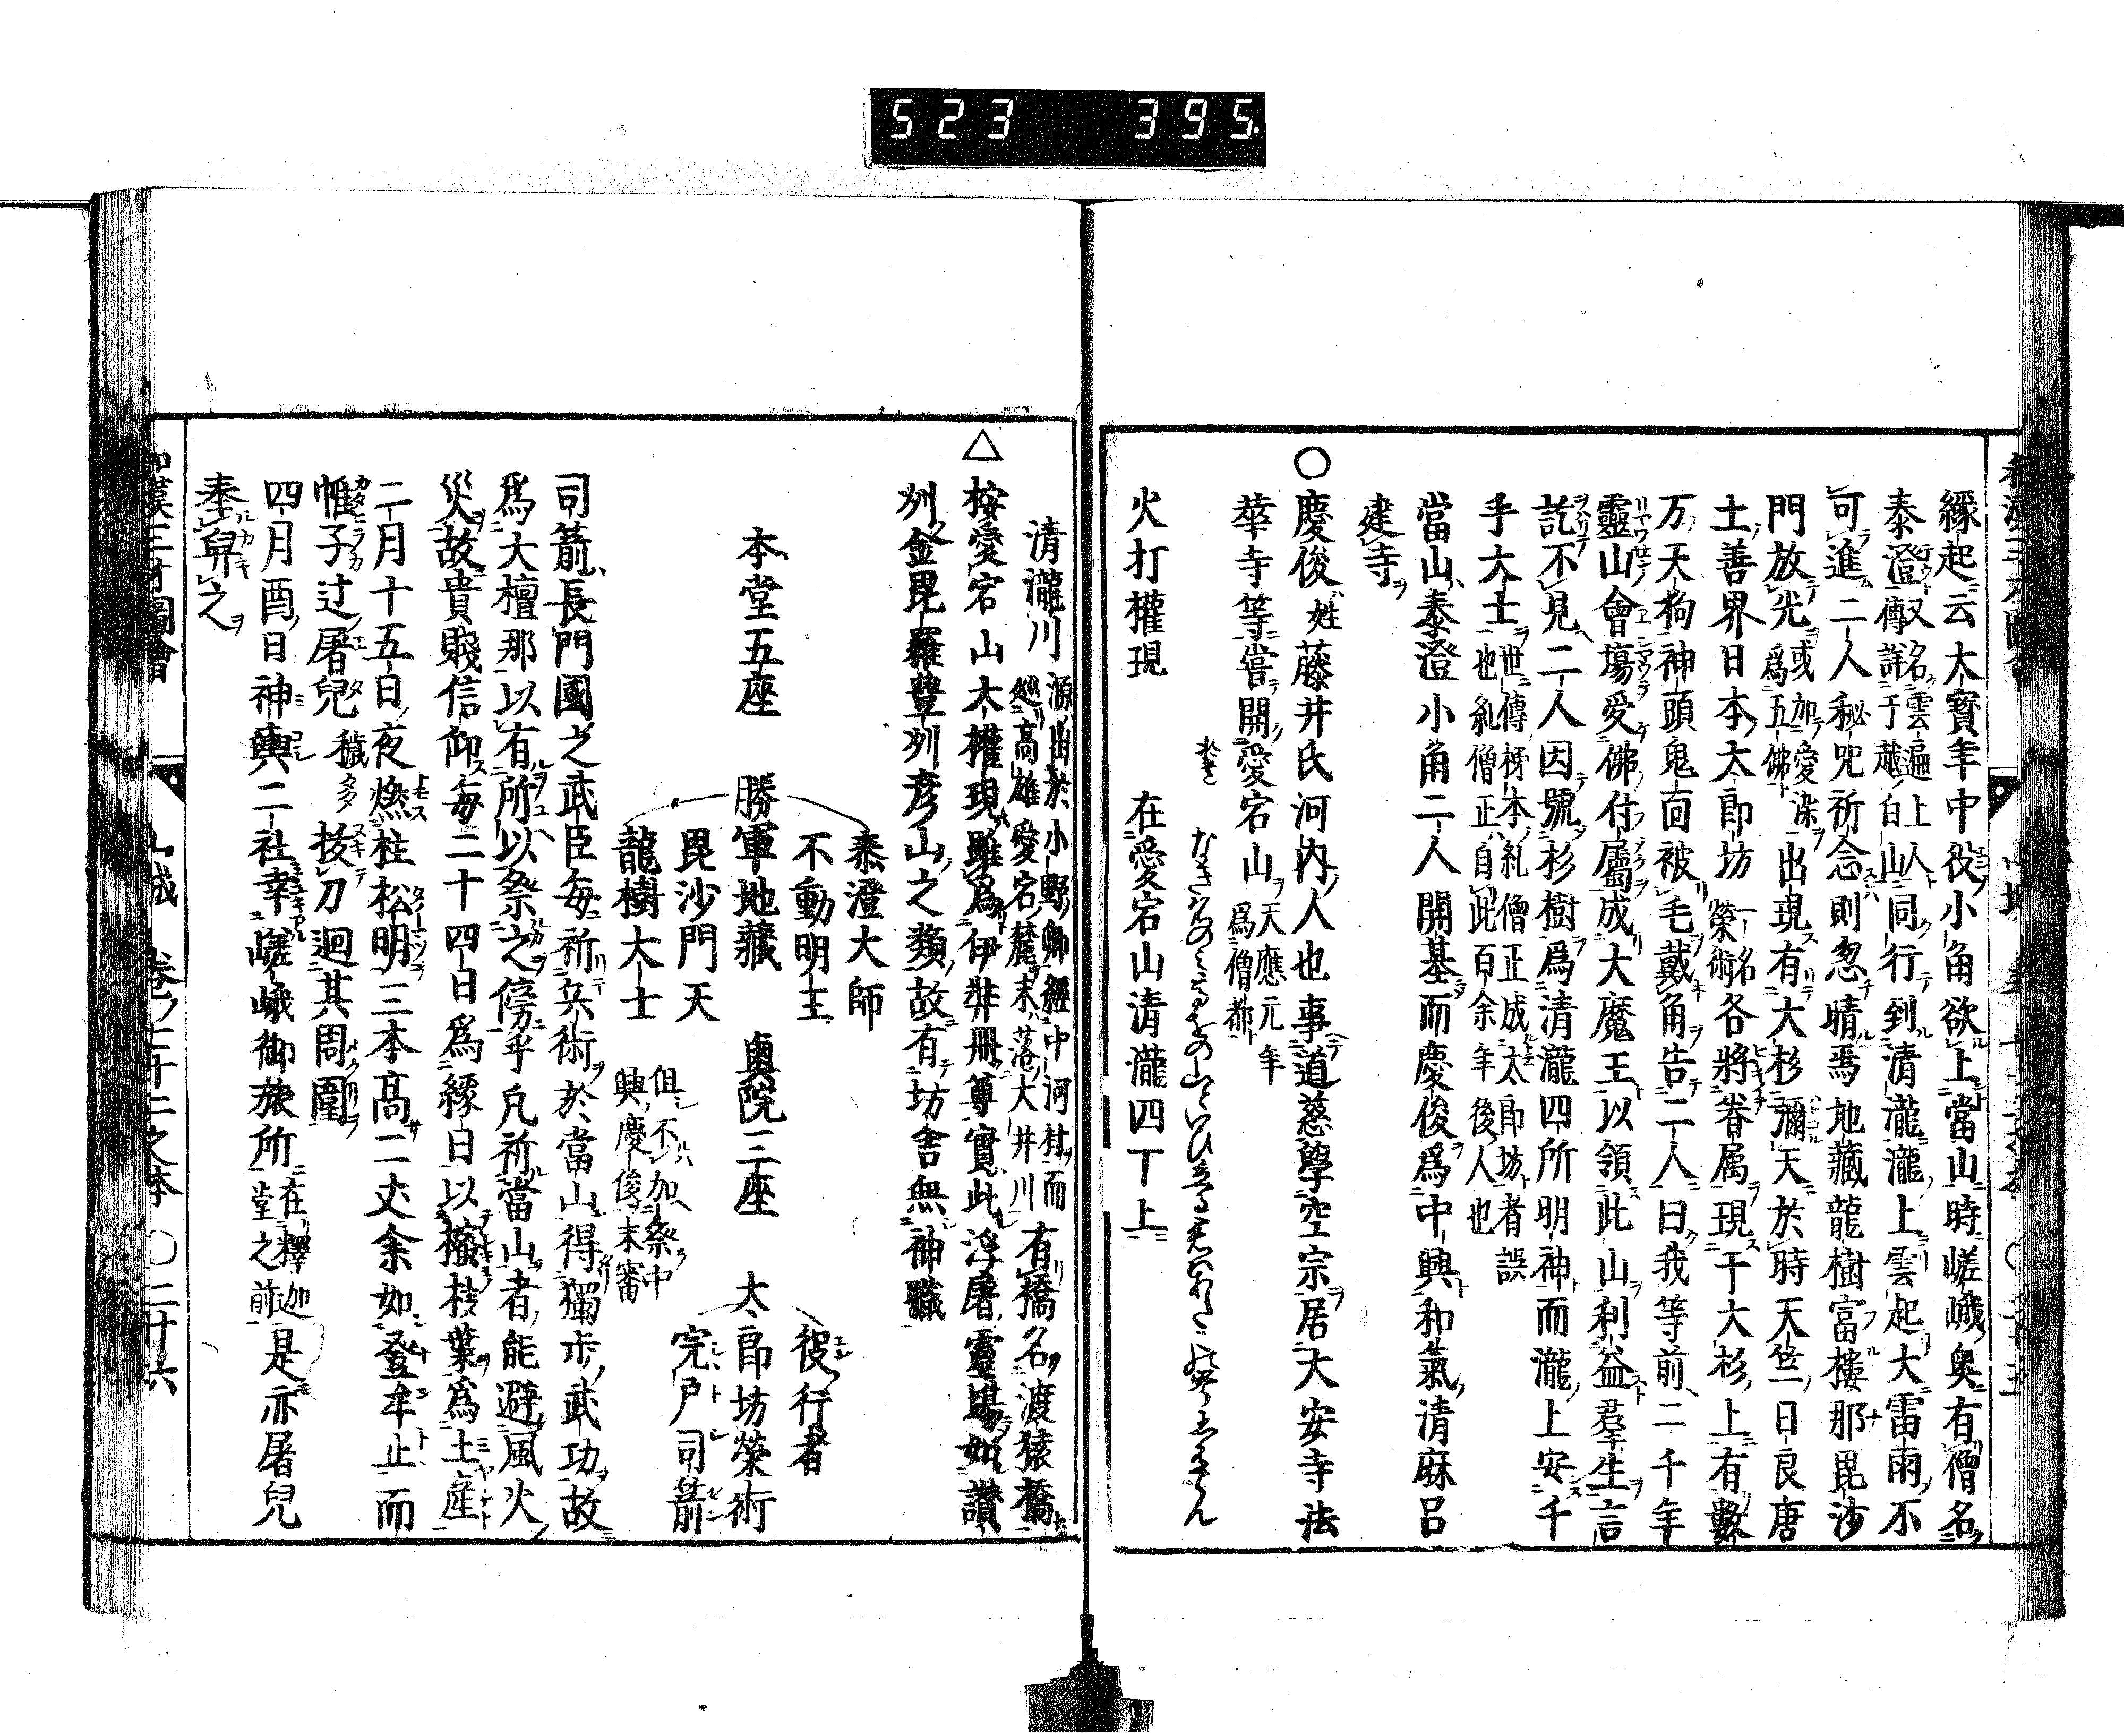 523 395
縁起云大寳年中役小角欲上當山時嵯峨奥有僧名
泰澄又名雲遍上人傳詳于越白山同行到清瀧瀧上雲起大雷雨不
可進二人秘咒祈念則忽晴焉地藏龍樹富樓那毘沙
門放光或加愛染爲五佛出現有大杉彌天於時天竺日良唐
土善界日本太郎坊一名榮術各將眷属現于大杉上有數
万天狗神頭鬼面被毛戴角告二人曰我等前二千年
靈山會場受佛付屬成大魔王以領此山利益羣生言
訖不見二人因號杉樹爲清瀧四所明神而瀧上安千
手大士世傳柿本紀僧正成太郎坊者誤也紀僧正自此百余年後人也
當山泰澄小角二人開基而慶俊爲中興和氣清麻呂
建寺
○慶俊姓藤井氏河内人也事道慈學空宗居大安寺法
華寺等嘗開愛宕山天應元年爲僧都
火打權現 在愛宕山清瀧四丁上
清瀧川源出於小野郷經中河村而巡高雄愛宕麓末落大井川有橋名渡猿橋
△按愛宕山大權現雖爲伊弉冊尊實此浮屠靈場如讃
州金毘羅豊州彦山之類故有坊舎無神職
泰澄大師
不動明王
本堂五座 勝軍地藏 奥院三座 太郎坊榮術
役行者
毘沙門天
龍樹大士
宍戸司箭
但不加祭中興慶俊未審
司箭長門國之武臣毎祈兵術於當山得獨歩武功故
爲大檀那以有所以祭之傍乎凡祈當山者能避風火
災故貴賤信仰毎二十四日爲縁日以樒枝葉爲土産
二月十五日夜燃柱松明三本高二丈余如登牟止而
帷子辻屠兒穢多拔刀迴其周圍
四月酉日神輿二社幸嵯峨御旅所在釋迦堂之前是亦屠兒
奉舁之
和漢三才圖會 山城 巻ノ七十二之本 ○二十六